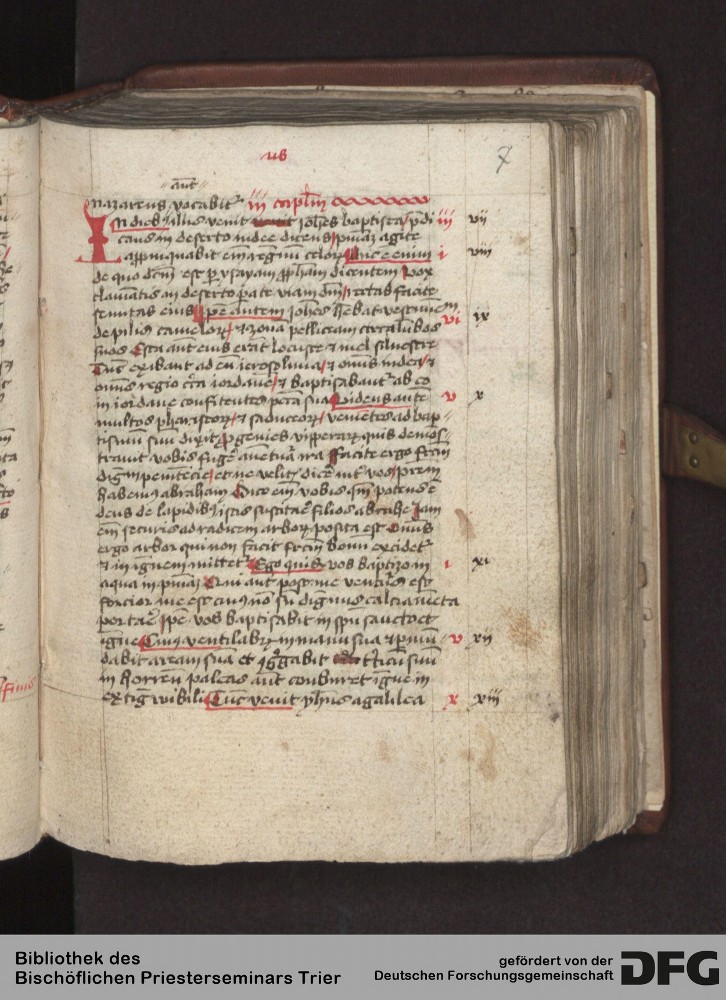 us
7
aut
nazareus vocabit' iii capl'm
In dieb' illis venit joh'es baptista p'di iii vii
cans in deserto iudee dicens p'niaz agite
app'inquabit em regnu celor' Hic e enim i viii
de quo dcm est p ysayam pph'am dicentem Vox
clamantis in deserto pate viam dni rectas facite
semitas eius Ipse autem joh'es h'ebat vestimem
vi ix
de pilis camelor' et zona pelliceam circa lu'bos
suos Esca aut eius erat locuste et mel silvestre
Tuc exibant ad eu ierosolima et omis iudea et
omis regio c'ca iordane et baptisabant' ab eo
in iordane confitentes pcta sua Videns aute v x
multos phariseor' et saduceor' venientes ad bap
tismu suu dixit pgenies viperar' quis demos
travit vobis fuge' a ventura ira facite ergo fctm
dignm penitecie et ne velit' dice' int' vos prem
habem' abraham Dico em vobis qm potens e
deus de lapidib' istis suscitare filios abrahe Jam
em securis ad radicem arbor' posita est Omis
ergo arbor qui non facit fctm bonu excidet'
et in ignem mittet' Ego quis vos baptizo in i xi
aqua in p'niaz Qui aut post me ventur' est
forcior me est cui' no su dignus calciameta
portare Ipse vos baptisabit in spu sancto et
igne Cui' ventilabr' in manu sua et p'mu v xii
dabit aream sua et 9gregabit triticu suu
in horreu paleas aut conburet igne in
extigwibili Tuc venit jhus a galilea x xiii
finis
Bibliothek des
Bischöflichen Priesterseminars Trier
gefördert von der
Deutschen Forschungsgemeinschaft
DFG